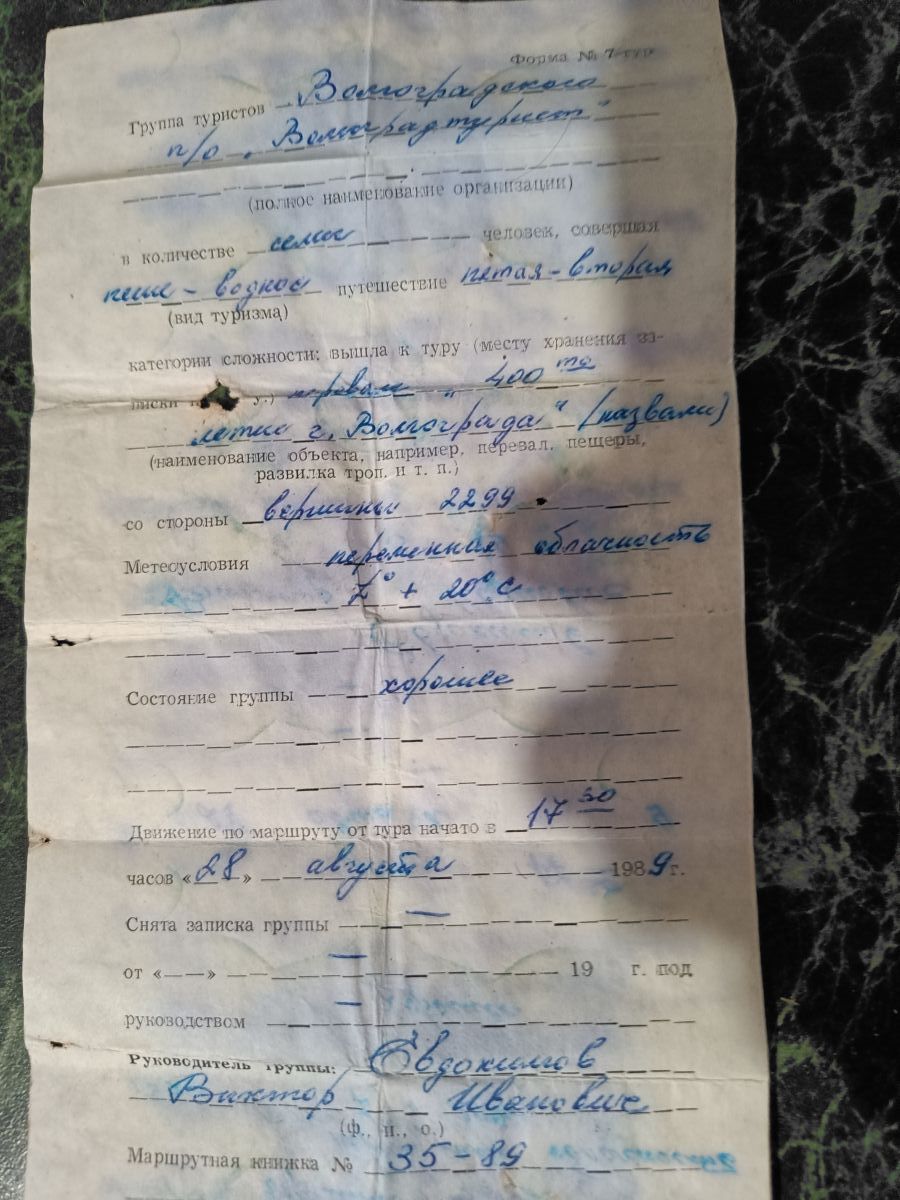 Форма № 7-тур
Группа туристов Волгоградского
п/о „Волгоградтурист"
(полное наименование организации)
в количестве семи человек, совершая
пеше-водное путешествие пятая-вторая
(вид туризма)
категории сложности: вышла к туру (месту хранения за-
писки у.) перевал „400 то
летие г. Волгограда" (назвали)
(наименование объекта, например, перевал, пещеры,
развилка троп. и т. п.)
со стороны вершины 2299
Метеоусловия переменная облачность
t° + 20°с
Состояние группы хорошее
Движение по маршруту от тура начато в 17 30
часов «28» августа 1989 г.
Снята записка группы —
от «——» — 19 г. под
руководством —
Руководитель группы: Евдокимов
Виктор Иванович
(ф., и., о.)
Маршрутная книжка № 35-89